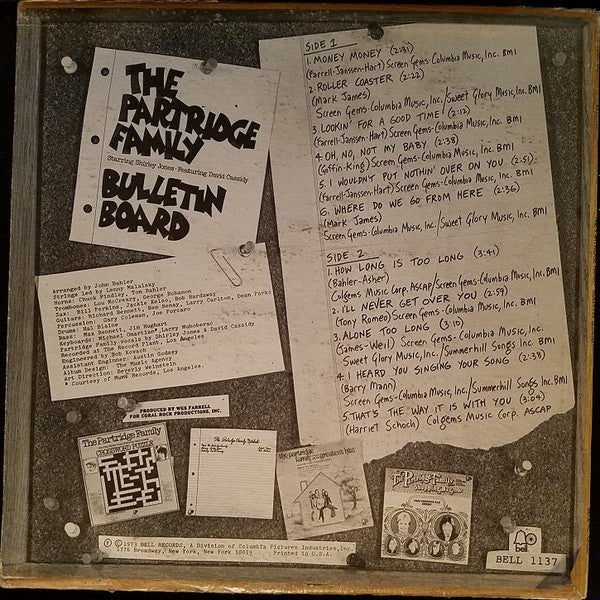 THE
PARTRIDGE
FAMILY
Starring Shirley Jones · Featuring David Cassidy
BULLETIN
BOARD
Arranged by John Bahler
Strings led by Lenny Malarsky
Horns: Chuck Findley, Tom Bahler
Trombones: Lou McCreary, George Bohanon
Sax: Bill Perkins, Jackie Kelso, Bob Hardaway
Guitars: Richard Bennett, Ben Benay, Larry Carlton, Dean Parks
Percussion: Gary Coleman, Joe Porcaro
Drums: Hal Blaine
Bass: Max Bennett, Jim Hughart
Keyboards: Michael Omartian*, Larry Muhoberac
Partridge Family vocals by Shirley Jones & David Cassidy
Recorded at The Record Plant, Los Angeles
Engineered by Bob Kovach
Assistant Engineer: Austin Godsey
Album Design: The Music Agency
Art Direction: Beverly Weinstein
* Courtesy of Mums Records, Los Angeles.
PRODUCED BY WES FARRELL
FOR CORAL ROCK PRODUCTIONS, INC.
SIDE 1
1. MONEY MONEY (2:31)
(Farrell-Janssen-Hart) Screen Gems-Columbia Music, Inc. BMI
2. ROLLER COASTER (2:22)
(Mark James)
Screen Gems-Columbia Music, Inc./Sweet Glory Music, Inc. BMI
3. LOOKIN' FOR A GOOD TIME (2:12)
(Farrell-Janssen-Hart) Screen Gems-Columbia Music, Inc. BMI
4. OH, NO, NOT MY BABY (2:38)
(Goffin-King) Screen Gems-Columbia Music, Inc. BMI
5. I WOULDN'T PUT NOTHIN' OVER ON YOU (2:51)
(Farrell-Janssen-Hart) Screen Gems-Columbia Music, Inc. BMI
6. WHERE DO WE GO FROM HERE (2:36)
(Mark James)
Screen Gems-Columbia Music, Inc./Sweet Glory Music, Inc. BMI
SIDE 2
1. HOW LONG IS TOO LONG (3:41)
(Bahler-Asher)
Colgems Music Corp. ASCAP/Screen Gems-Columbia Music, Inc. BMI
2. I'LL NEVER GET OVER YOU (2:59)
(Tony Romeo) Screen Gems-Columbia Music, Inc. BMI
3. ALONE TOO LONG (3:10)
(James-Weil) Screen Gems-Columbia Music, Inc.
Sweet Glory Music, Inc./Summerhill Songs Inc. BMI
4. I HEARD YOU SINGING YOUR SONG (2:38)
(Barry Mann)
Screen Gems-Columbia Music, Inc./Summerhill Songs Inc. BMI
5. THAT'S THE WAY IT IS WITH YOU (3:04)
(Harriet Schock) Colgems Music Corp. ASCAP
The Partridge Family
CROSSWORD PUZZLE
The Partridge Family Notebook
the partridge
family
greatest hits
The Partridge Family
Ⓟ©1973 BELL RECORDS, A Division of Columbia Pictures Industries, Inc.
1776 Broadway, New York, New York 10019 Printed in U.S.A.
bell
BELL 1137